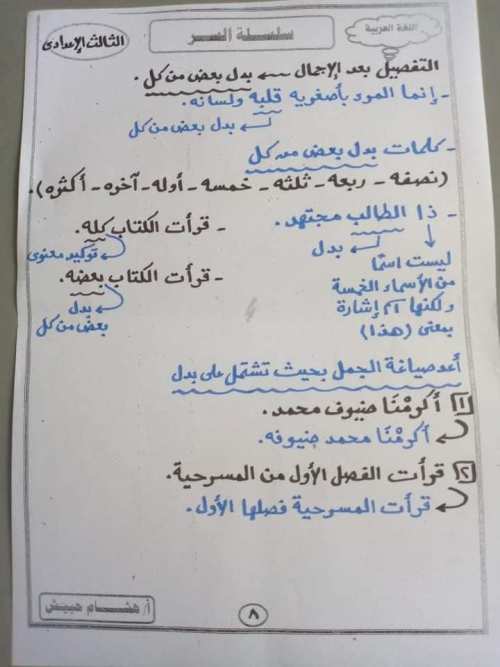 اللغة العربية
سلسلة السر
الثالث الإعدادى
التفصيل بعد الإجمال ← بدل بعض من كل.
- إنما المرء بأصغريه قلبه ولسانه.
بدل بعض من كل
- كلمات بدل بعض من كل
(نصفه - ربعه - ثلثه - خمسه - أوله - آخره - أكثره).
- ذا الطالب مجتهد.
بدل
ليست اسمًا
من الأسماء الخمسة
ولكنها اسم إشارة
بمعنى (هذا)
- قرأت الكتاب كله.
توكيد معنوى
- قرأت الكتاب بعضه.
بدل
بعض من كل
أعد صياغة الجمل بحيث تشتمل على بدل
١ أكرمْنَا ضيوف محمد.
أكرمْنَا محمد ضيوفه.
٢ قرأت الفصل الأول من المسرحية.
قرأت المسرحية فصلها الأول.
٨
أ/ هشام حبيش